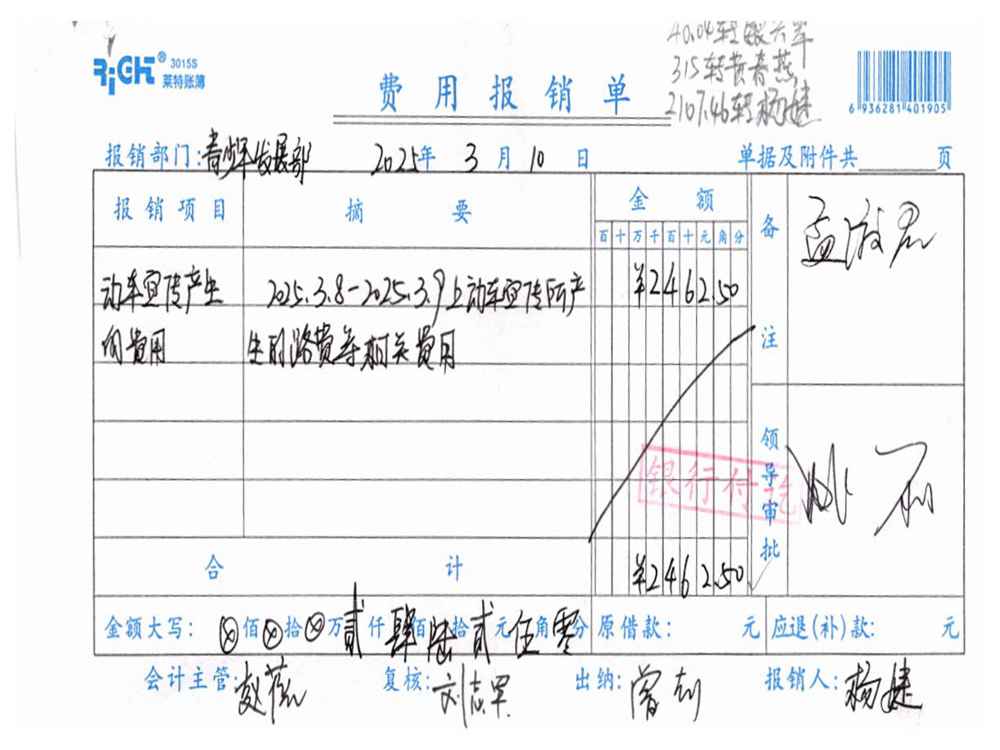 40.04转银兴军
315转黄春燕
2107.46转杨婕
RiGHT® 3015S
莱特账簿
费用报销单
6 936281 401905
报销部门:青少年发展部 2025年3月10日 单据及附件共 页
报销项目 摘要 金额 备注 孟淑君
百十万千百十元角分
动车宣传产生 2025.3.8-2025.3.9上动车宣传所产 ¥2462.50
的费用 生的路费等相关费用
领导审批
银行付讫
合计 ¥2462.50
金额大写: ⊗佰⊗拾⊗万贰仟肆佰陆拾贰元伍角零分 原借款: 元 应退(补)款: 元
会计主管: 赵薇 复核: 刘志军 出纳: 曾利 报销人: 杨婕